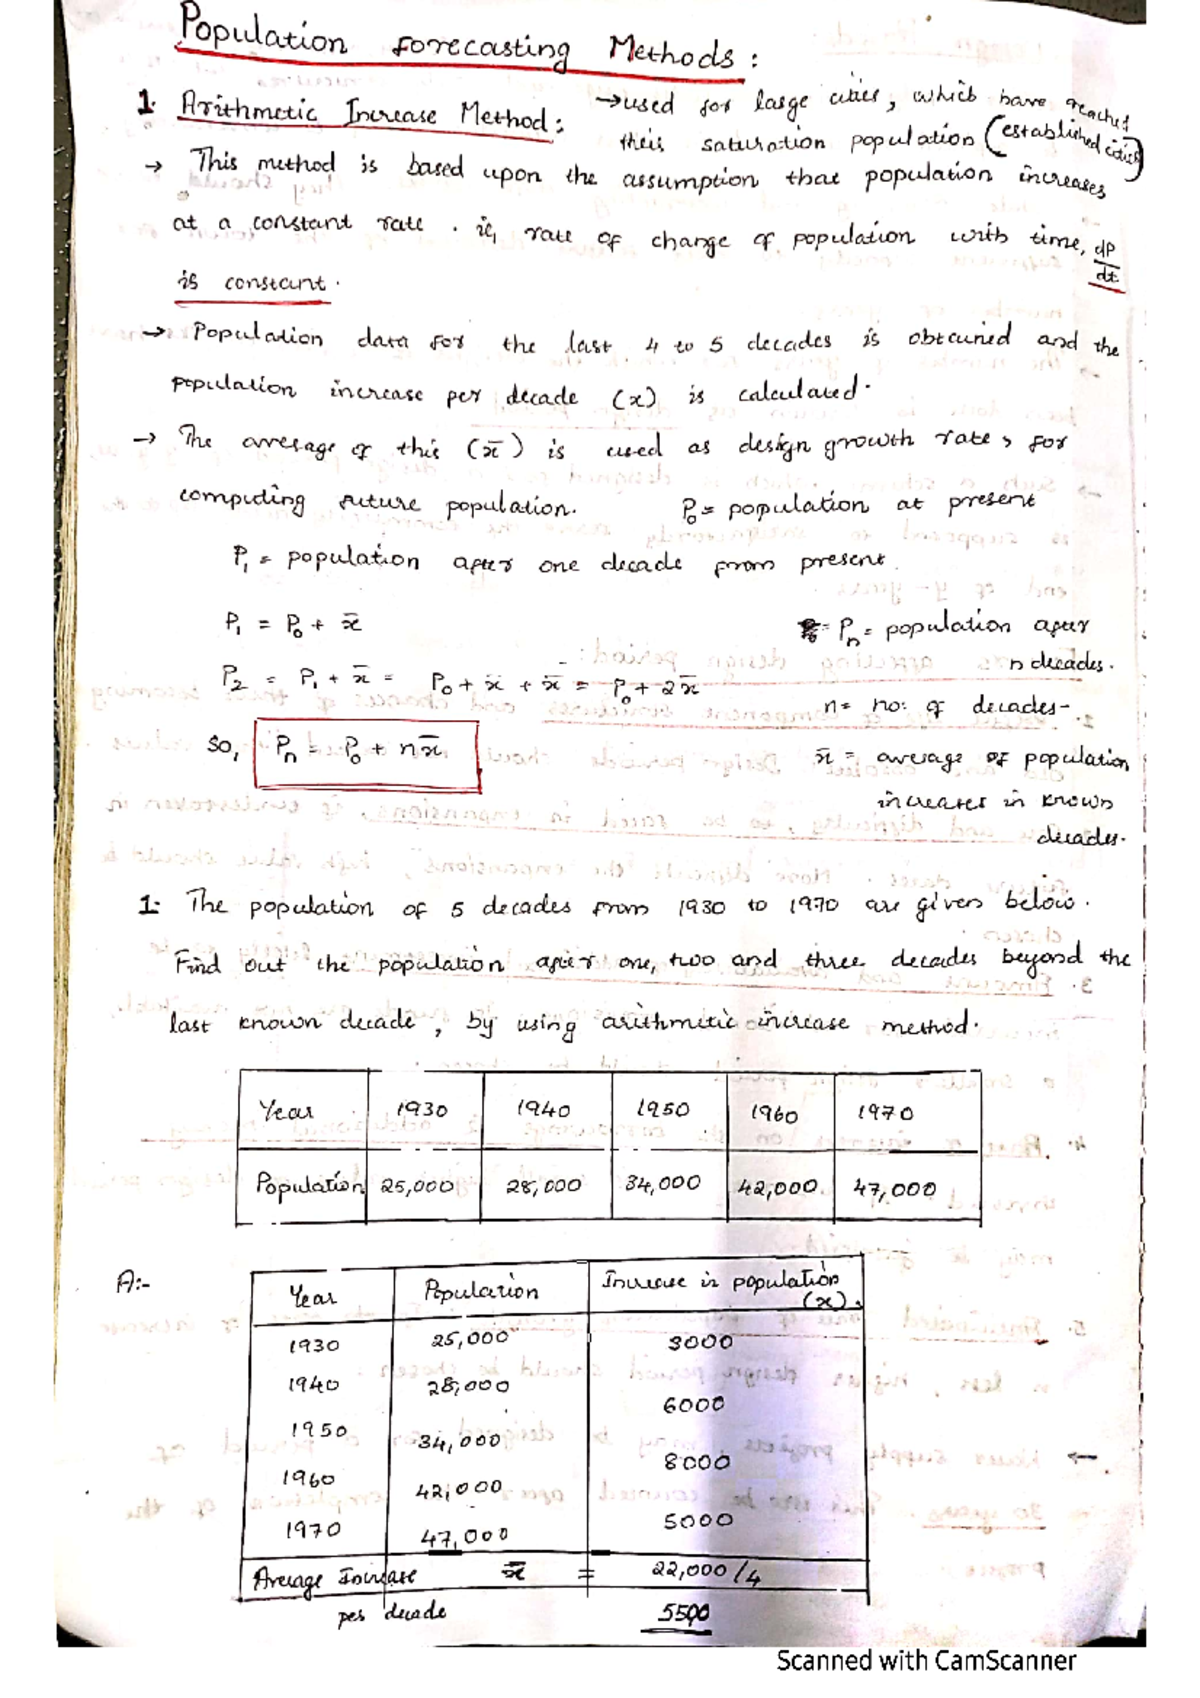 Population forecasting Methods :
1. Arithmetic Increase Method : → used for large cities, which have reached
their saturation population (established cities)
→ This method is based upon the assumption that population increases
at a constant rate . ie, rate of change of population with time, dP/dt
is constant.
→ Population data for the last 4 to 5 decades is obtained and the
population increase per decade (x) is calculated.
→ The average of this (x̄) is used as design growth rate, for
computing future population. P₀ = population at present
P₁ = population after one decade from present.
P₁ = P₀ + x̄
Pₙ = population after
n decades.
P₂ = P₁ + x̄ = P₀ + x̄ + x̄ = P₀ + 2x̄
n = no: of decades-
So, Pₙ = P₀ + nx̄
x̄ = average of population
increases in known
decades.
1. The population of 5 decades from 1930 to 1970 are given below.
Find out the population after one, two and three decades beyond the
last known decade, by using arithmetic increase method.
Year 1930 1940 1950 1960 1970
Population 25,000 28,000 34,000 42,000 47,000
A:-
Year Population Increase in population
(x).
1930 25,000 3000
1940 28,000
6000
1950 34,000
8000
1960 42,000
5000
1970 47,000
Average Increase x̄ = 22,000/4
per decade 5500
Scanned with CamScanner